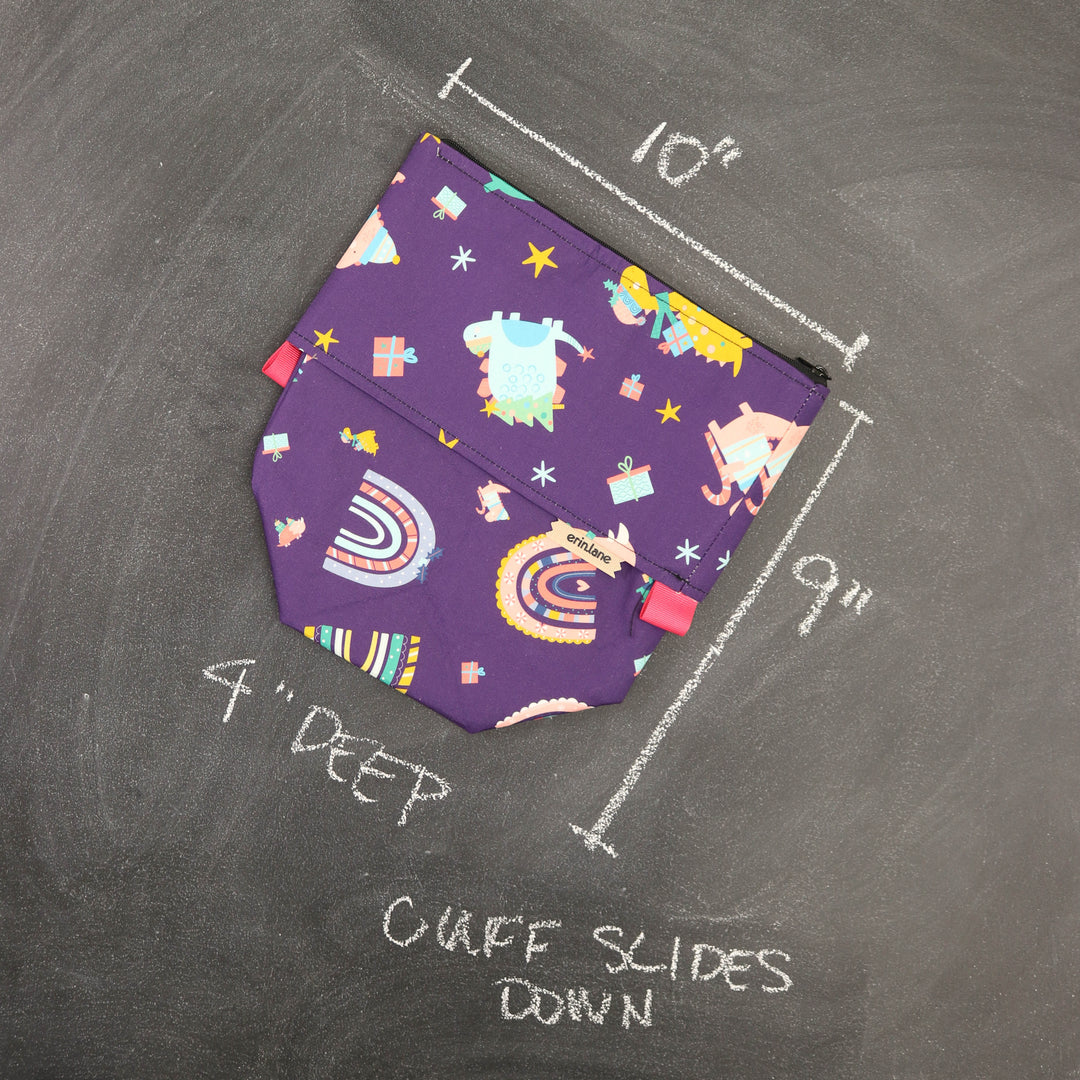 10"
erin.lane
9"
4" DEEP
CUFF SLIDES
DOWN